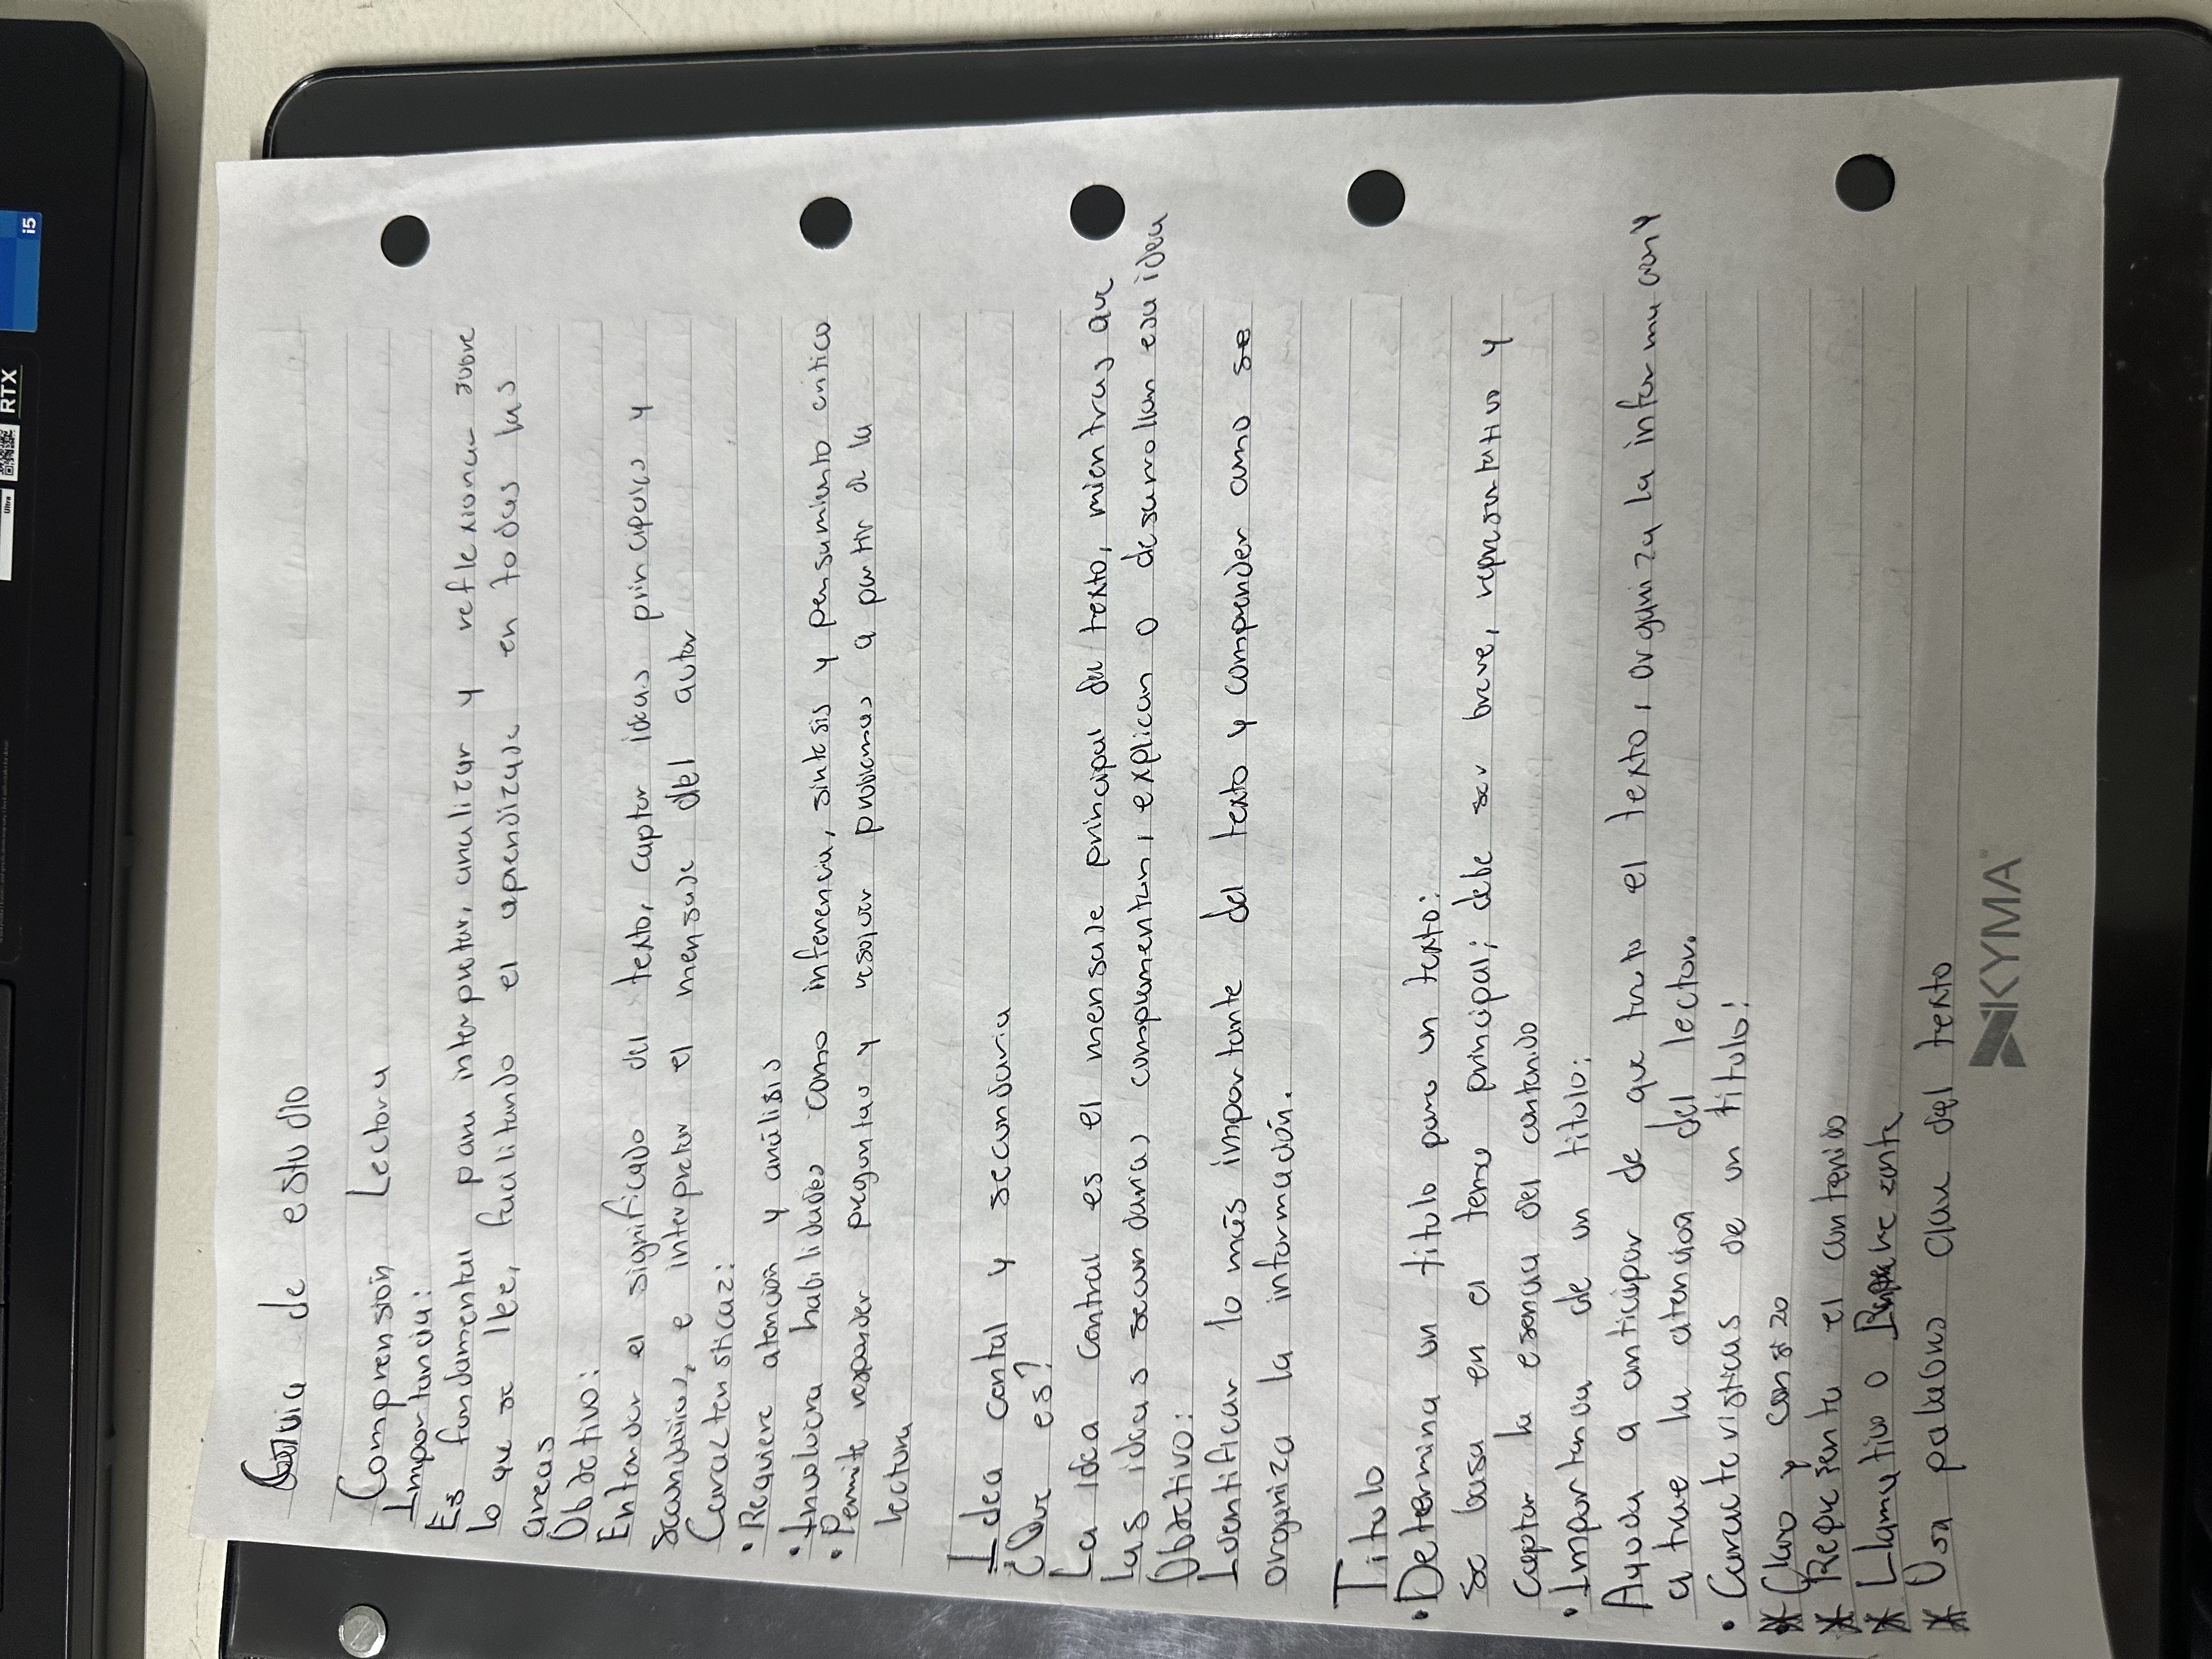 Guia de estudio
Comprensión Lectora
Importancia:
Es fundamental para interpretar, analizar y reflexionar sobre
lo que se lee, facilitando el aprendizaje en todas las
areas
Objetivo:
Entender el significado del texto, captar ideas principales y
secundarias, e interpretar el mensaje del autor
Caracteristicaz:
• Requiere atención y análisis
• Involucra habilidades como inferencia, sintesis y pensamiento critico
• Permite responder preguntas y resolver problemas a partir de la
lectura
Idea cental y secundaria
¿Que es?
La idea central es el mensaje principal del texto, mientras que
las ideas secundarias complementan, explican o desarrollan esa idea
Objetivo:
Identificar lo más importante del texto y comprender como se
organiza la información.
Titulo
• Determina un titulo para un texto:
se basa en el tema principal; debe ser breve, representativo y
captar la esencia del contenido
• Importancia de un titulo:
Ayuda a anticipar de que trata el texto, organiza la informacion y
atrae la atencion del lector.
• Caracteristicas de un titulo:
* Claro y consizo
* Representa el contenido
* Llamativo o
* Usa palabras clave del texto
KYMA
i5
RTX
Ultra